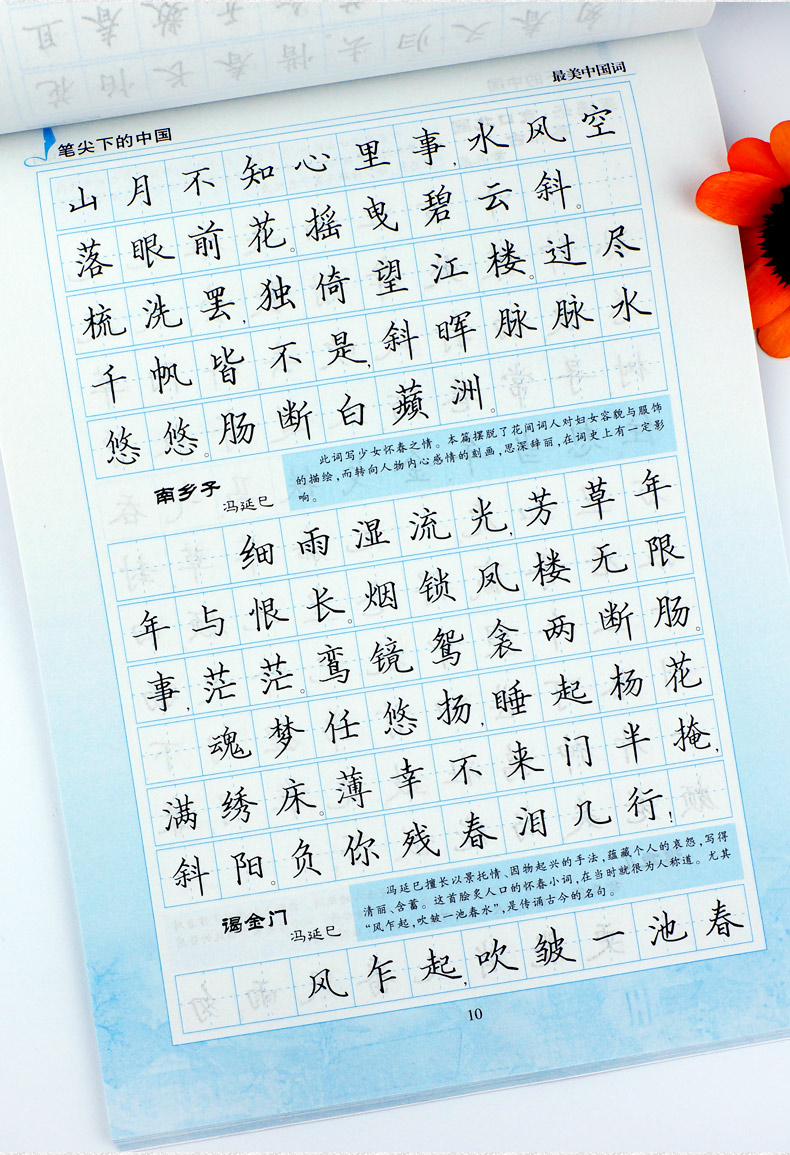 笔尖下的中国
最美中国词
山月不知心里事,水风空
落眼前花。摇曳碧云斜。
梳洗罢,独倚望江楼。过尽
千帆皆不是,斜晖脉脉水
悠悠。肠断白蘋洲。
此词写少女怀春之情。本篇摆脱了花间词人对妇女容貌与服饰
的描绘,而转向人物内心感情的刻画,思深辞丽,在词史上有一定影
响。
南乡子
冯延巳
细雨湿流光,芳草年
年与恨长。烟锁凤楼无限
事,茫茫。鸾镜鸳衾两断肠。
魂梦任悠扬,睡起杨花
满绣床。薄幸不来门半掩,
斜阳。负你残春泪几行!
冯延巳擅长以景托情、因物起兴的手法,蕴藏个人的哀怨,写得
清丽、含蓄。这首脍炙人口的怀春小词,在当时就很为人称道。尤其
“风乍起,吹皱一池春水”,是传诵古今的名句。
谒金门
冯延巳
风乍起,吹皱一池春
10